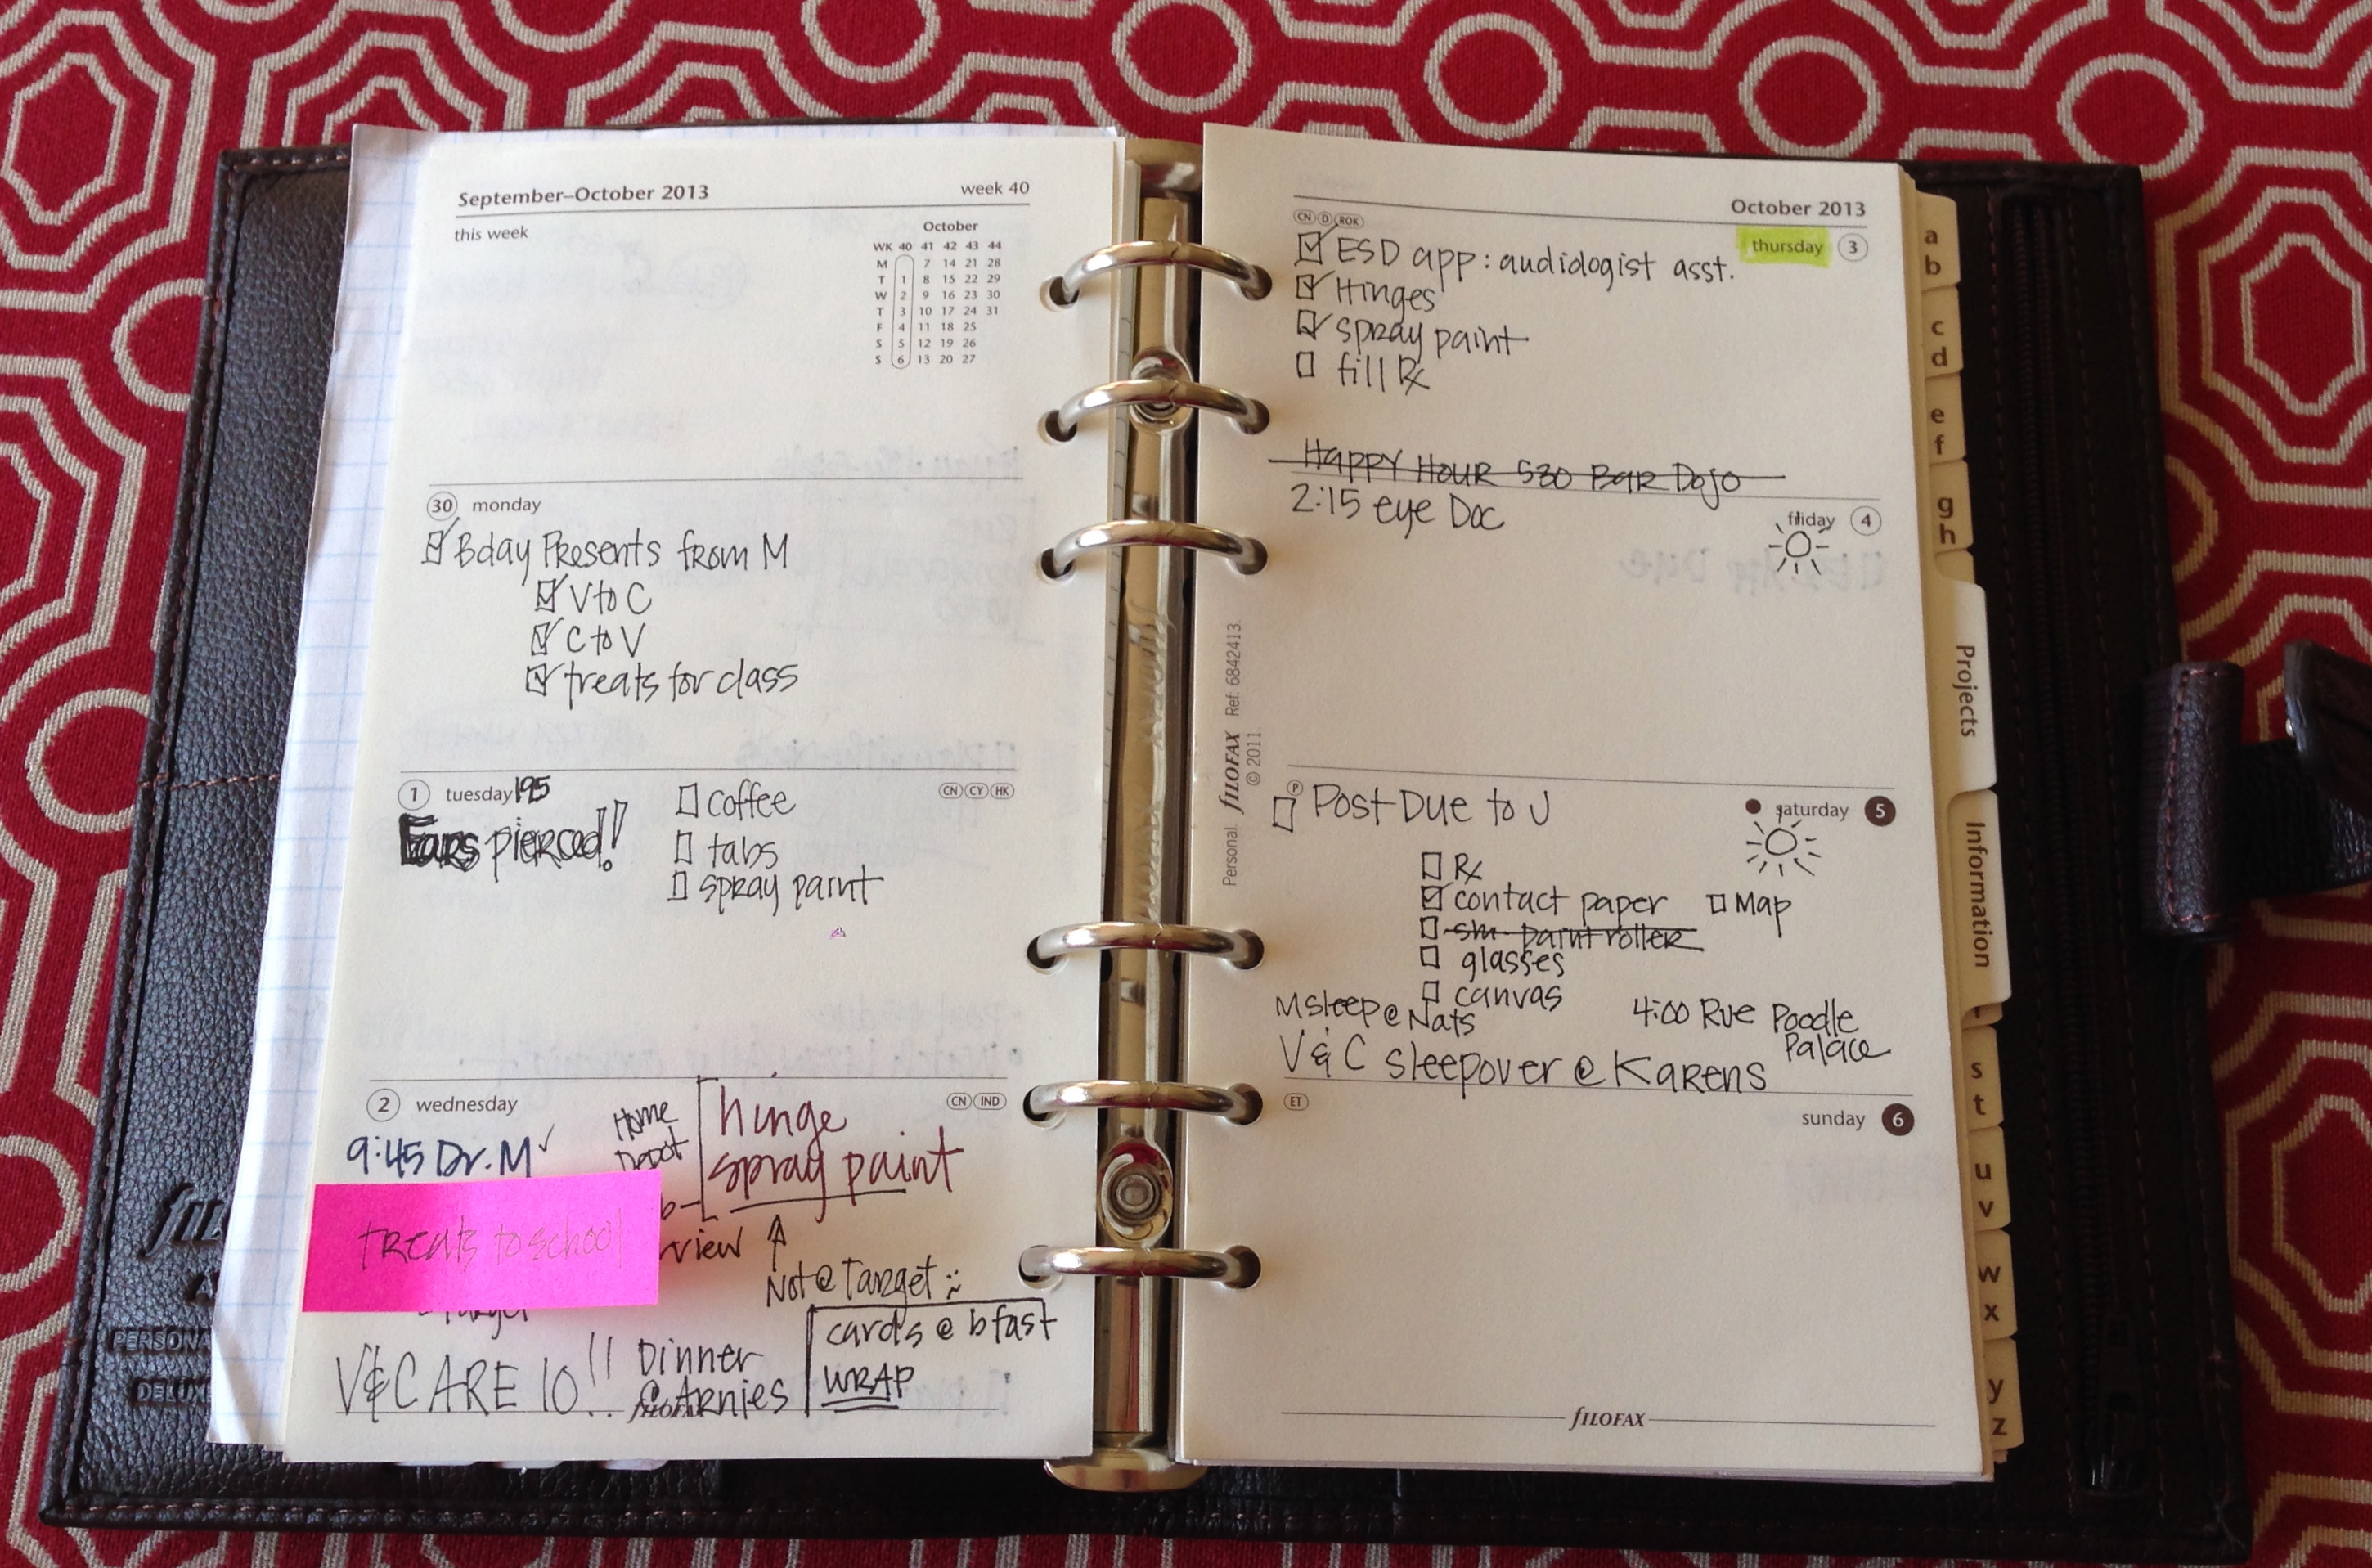 September–October 2013
week 40
this week
October
WK 40 41 42 43 44
M 7 14 21 28
T 1 8 15 22 29
W 2 9 16 23 30
T 3 10 17 24 31
F 4 11 18 25
S 5 12 19 26
S 6 13 20 27
30 monday
Bday Presents from M
V to C
C to V
treats for class
1 tuesday 195
CN CY HK
Ears pierced!
coffee
tabs
spray paint
2 wednesday
CN IND
9:45 Dr. M
Home
Depot
hinge
spray paint
treats to school
view
Not @ Target
Target
V&C ARE 10!!
Dinner
@ Arnies
cards @ bfast
WRAP
FILOFAX
October 2013
CN D ROK
thursday 3
ESD app: audiologist asst.
Hinges
spray paint
fill Rx
Happy Hour 530 Bar Dojo
2:15 eye Doc
friday 4
P
saturday 5
Post Due to J
Rx
contact paper
Map
sm paint roller
glasses
canvas
M sleep @ Nats
4:00 Rue Poodle
Palace
V & C sleepover @ Karens
ET
sunday 6
FILOFAX
Personal FILOFAX Ref: 6842413.
© 2011.
a
b
c
d
e
f
g
h
Projects
Information
s
t
u
v
w
x
y
z
FILO
PERSONA
DELUX